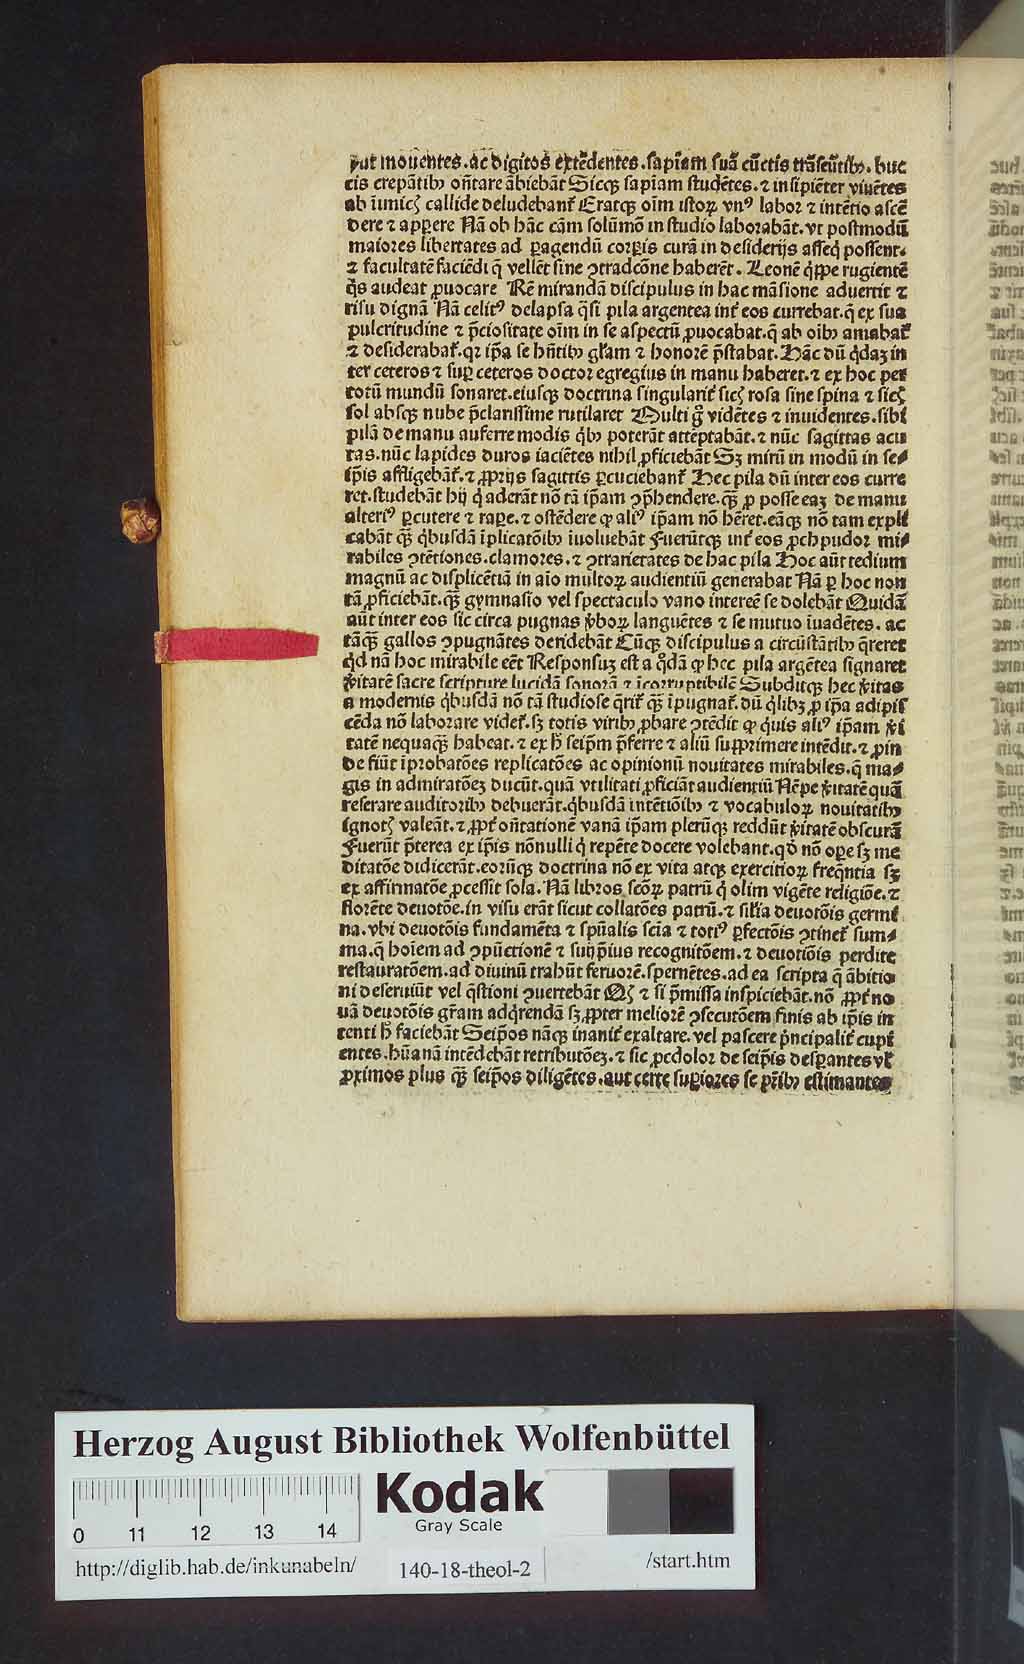 rūt mouentes. ac digitos extēdentes. sapiam suā cūctis trāseūtibꝫ. huc
cis crepātibꝫ oñtare ābiebāt Sicqꝫ sapiam studētes. ⁊ insipiēter viuētes
ab īimicꝭ callide deludebant᷑ Eratqꝫ oīm istoꝝ vnꝰ labor ⁊ intētio ascē
dere ⁊ apꝑere Nā ob hāc cām solūmō in studio laborabāt. vt postmodū
maiores libertates ad ꝑagendū corꝑis curā in desiderijs asseq̇ possent.
⁊ facultatē faciēdi q̄ vellēt sine ↄtradcōne haberēt. Leonē q̇ppe rugientē
q̇s audeat ꝓuocare Rē mirandā discipulus in hac māsione aduertit ⁊
risu dignā Nā celitꝰ delapsa q̄si pila argentea int᷑ eos currebat. q̄ ex sua
pulcritudine ⁊ p̄ciositate oīm in se aspectū ꝓuocabat. q̄ ab oibꝫ amabat᷑
⁊ desiderabat᷑. qꝛ ip̄a se hn̄tibꝫ gr̄am ⁊ honorē p̄stabat. Hāc dū q̇daꝫ in
ter ceteros ⁊ suꝑ ceteros doctor egregius in manu haberet. ⁊ ex hoc per
totū mundū sonaret. eiusqꝫ doctrina singularit᷑ sicꝭ rosa sine spina ⁊ sicꝭ
sol absqꝫ nube p̄clarissime rutilaret Multi g̊ vidētes ⁊ inuidentes. sibi
pilā de manu auferre modis q̇bꝫ poterāt attēptabāt. ⁊ nūc sagittas acu
tas. nūc lapides duros iaciētes nihil ꝓficiebāt Sꝫ mirū in modū in se⸗
ip̄is affligebāt᷑. ⁊ ꝓprijs sagittis ꝑcuciebant᷑ Hec pila dū inter eos curre
ret. studebāt hij q̇ aderāt nō tā ip̄am ↄp̄hendere. qꝫ̄ ꝓ posse eaꝫ de manu
alteriꝰ ꝑcutere ⁊ raꝑe. ⁊ ostēdere ꝙ aliꝰ ip̄am nō hēret. eāqꝫ nō tam expli
cabāt qꝫ̄ q̇busdā īplicatōibꝫ īuoluebāt Fuerūtqꝫ int᷑ eos ꝓch pudor mi⸗
rabiles ↄtētiones. clamores. ⁊ ↄtrarietates de hac pila Hoc aūt tedium
magnū ac displicētiā in aīo multoꝝ audientiū generabat Nā ꝑ hoc non
tā ꝓficiebāt. qꝫ̄ gymnasio vel spectaculo vano intereē se dolebāt Quidā
aūt inter eos sic circa pugnas v̓boꝝ languētes ⁊ se mutuo īuadētes. ac
tāqꝫ̄ gallos ↄpugnātes deridebāt Cūqꝫ discipulus a circūstātibꝫ q̄reret
q̇d nā hoc mirabile eēt Responsuꝫ est a q̊dā ꝙ hec pila argētea signaret
v̓itatē sacre scripture lucidā sonorā ⁊ īcorruptibilē Subditqꝫ hec v̓itas
a modernis q̇busdā nō tā studiose q̄rit᷑ qꝫ̄ īpugnat᷑. dū q̇libꝫ ꝓ ip̄a adipis
cēda nō laborare videt᷑. sꝫ totis viribꝫ ꝓbare ↄtēdit ꝙ q̇uis aliꝰ ip̄am v̓i
tatē nequaqꝫ̄ habeat. ⁊ ex h̄ seip̄m p̄ferre ⁊ aliū supprimere intēdit. ⁊ ꝓin
de fiūt īprobatōes replicatōes ac opinionū nouitates mirabiles. q̄ ma⸗
gis in admiratōeꝫ ducūt. quā vtilitati ꝓficiāt audientiū Nēpe v̓itatē quā
reserare auditoribꝫ debuerāt. q̇busdā intētiōibꝫ ⁊ vocabuloꝝ nouitatibꝫ
ignotꝭ valeāt. ⁊ ꝓpt᷑ oñtationē vanā ip̄am plerūqꝫ reddūt v̓itatē obscurā
Fuerūt p̄terea ex ip̄is nōnulli q̇ repēte docere volebant. qd̓ nō oꝑe sꝫ me
ditatōe didicerāt. eorūqꝫ doctrina nō ex vita atqꝫ exercitioꝝ freq̄ntia sꝫ
ex affirmatōe ꝓcessit sola. Nā libros scōꝝ patrū q̇ olim vigēte religiōe. ⁊
florēte deuotōe. in visu erāt sicut collatōes patrū. ⁊ sil̄ia deuotōis germi
na. vbi deuotōis fundamēta ⁊ spūalis scīa ⁊ totiꝰ ꝑfectōis ↄtinet᷑ sum⸗
ma. q̄ hoīem ad ↄpūctionē ⁊ suijp̄ius recognitōem. ⁊ deuotiōis perdite
restauratōem. ad diuinū trahūt feruorē. spernētes. ad ea scripta q̄ ābitio
ni deseruiūt vel q̄stioni ↄuertebāt Qꝭ ⁊ si p̄missa inspiciebāt. nō ꝓpt᷑ no
uā deuotōis gr̄am adq̇rendā sꝫ ꝓpter meliorē ↄsecutōem finis ab ip̄is in
tenti h̄ faciebāt Seip̄os nāqꝫ inanit᷑ exaltare. vel pascere p̓ncipalit᷑ cupi
entes. hūanā intēdebāt retributōeꝫ. ⁊ sic ꝓcdolor de seip̄is desꝑantes vl̓
ꝓximos plus qꝫ̄ seip̄os diligētes. aut certe suꝑiores se pr̄ibꝫ estimantes
Herzog August Bibliothek Wolfenbüttel
0 11 12 13 14
Kodak
Gray Scale
http://diglib.hab.de/inkunabeln/
140-18-theol-2
/start.htm